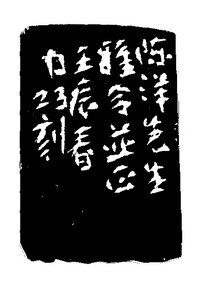 陈洋先生
雅令並正
壬辰春
刻